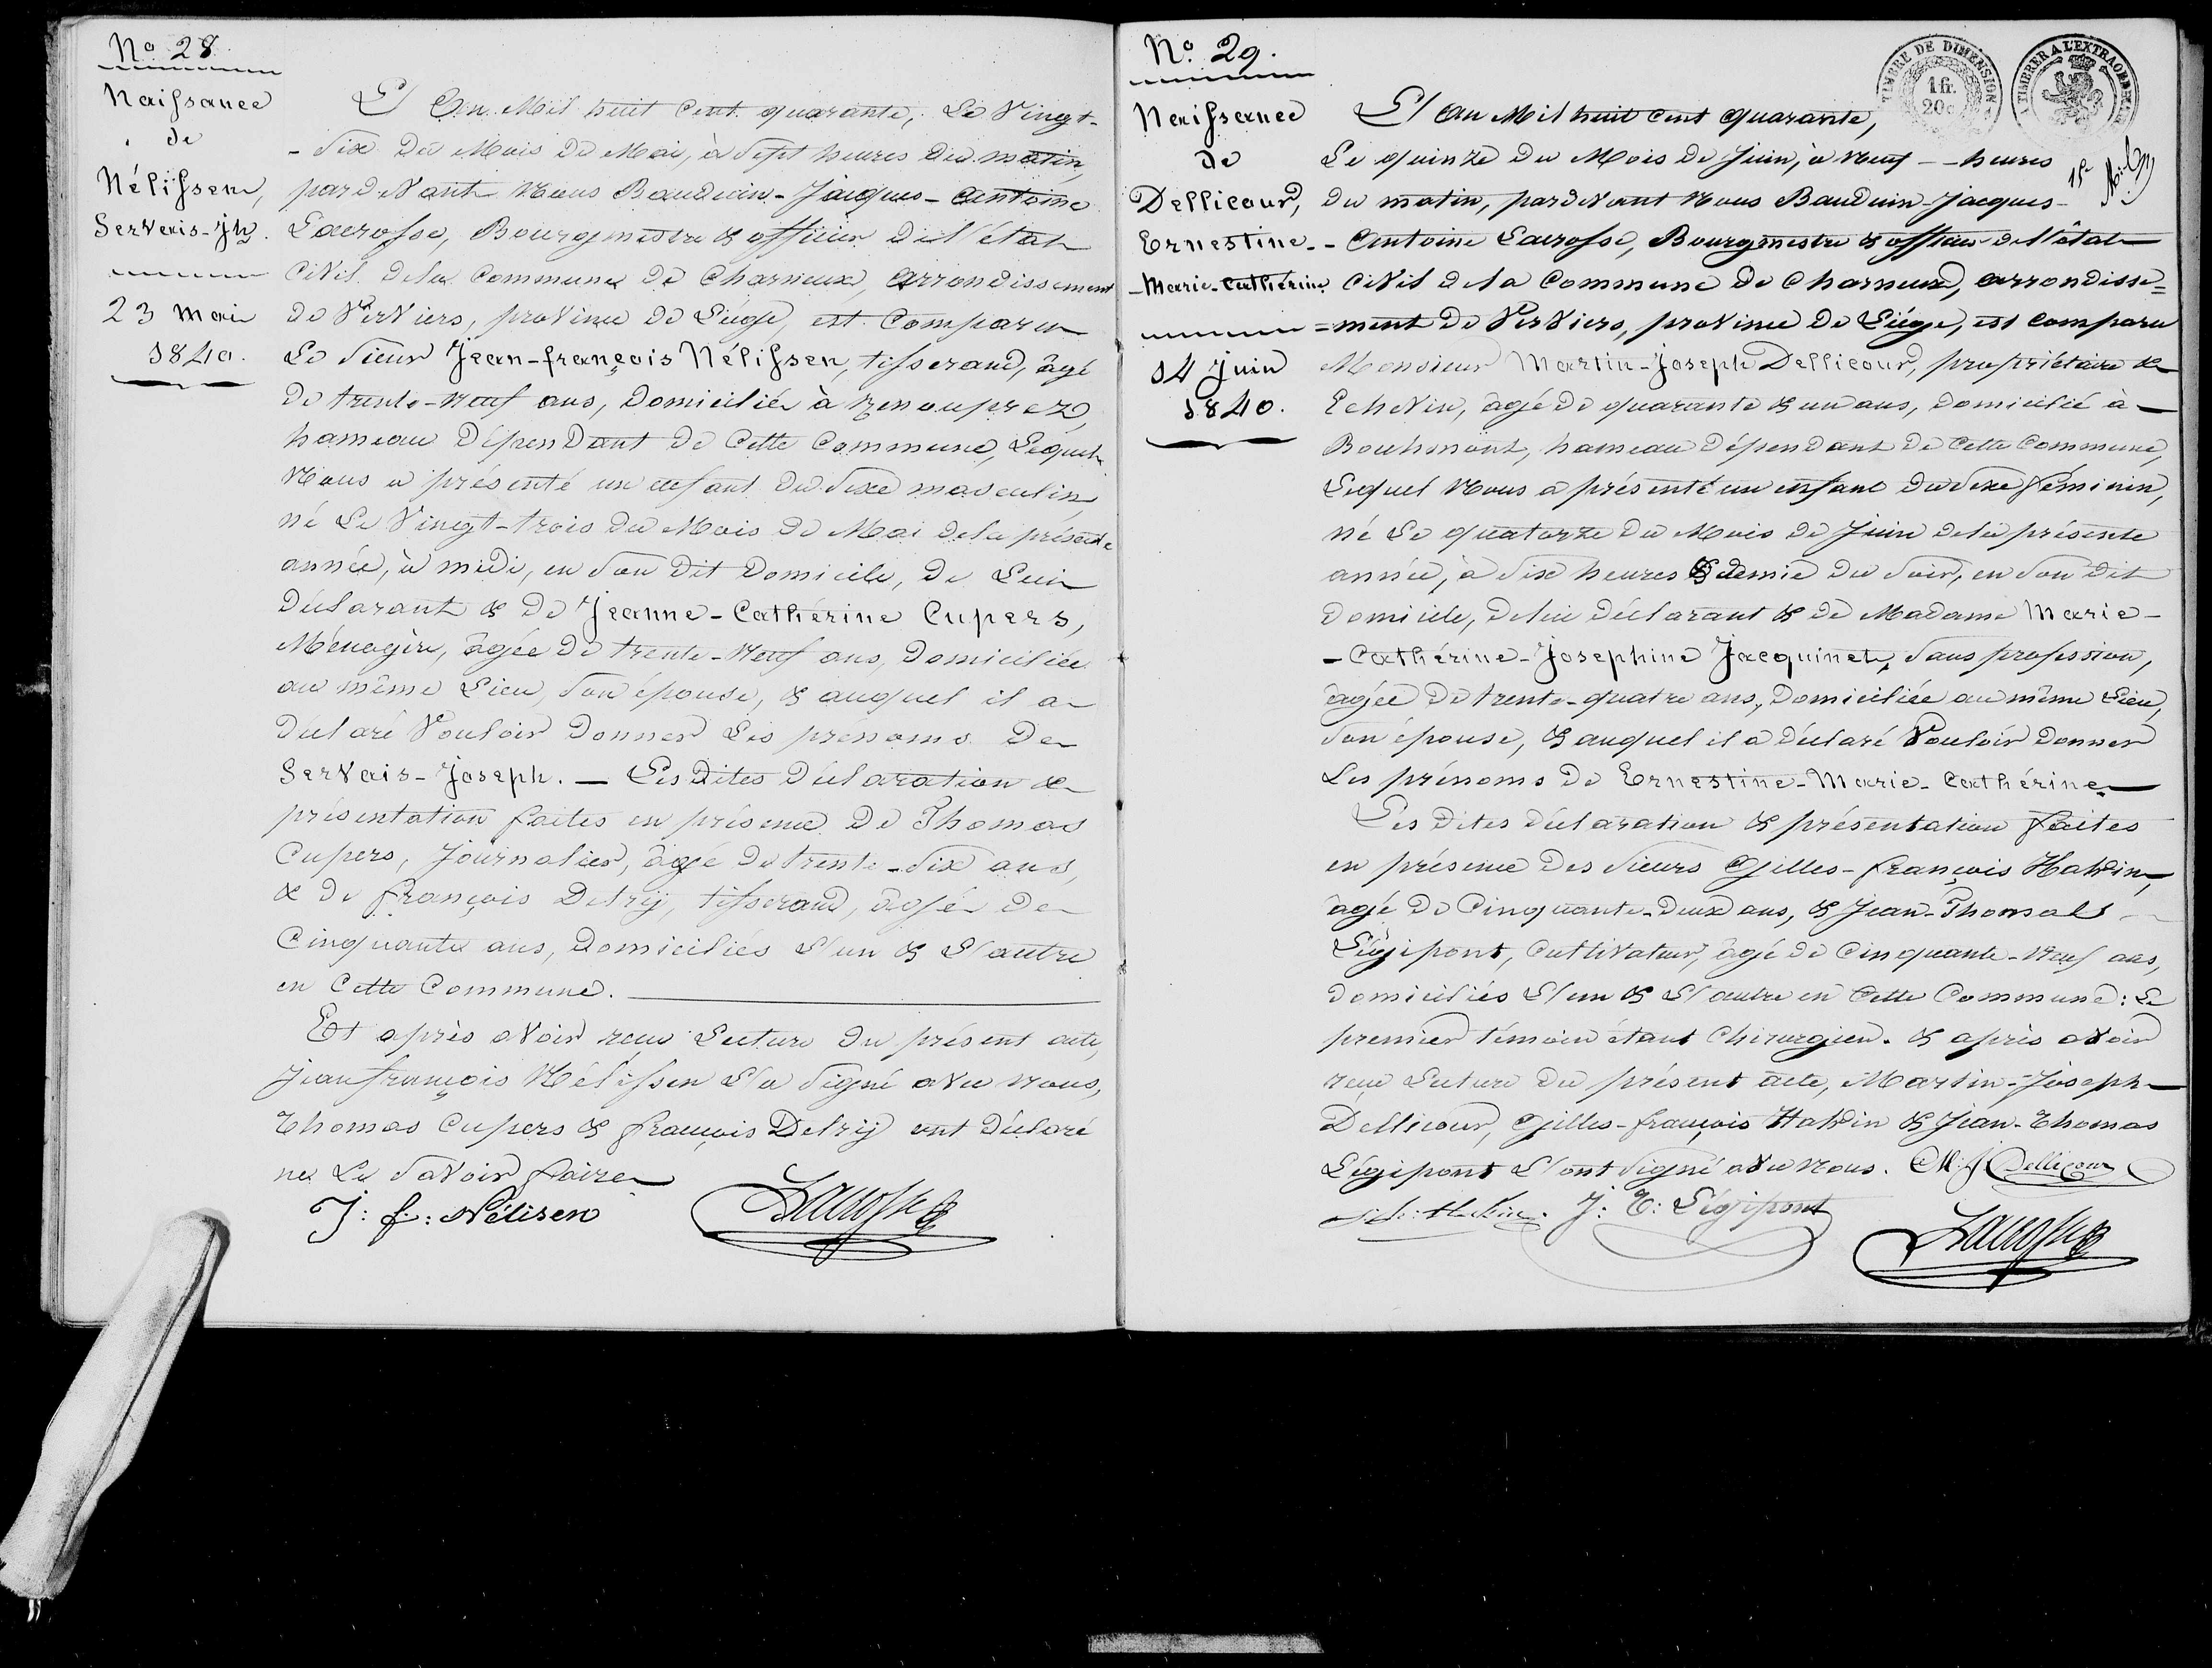 No 28.
Naissance
de
Nélissen,
Servais-Jh.
23 mai
1840.
L'an Mil huit cent quarante, Le Vingt-
-six du Mois de Mai, à sept heures du matin,
pardevant Nous Bauduin-Jacques-Antoine
Lacrosse, Bourgmestre & officier de l'état
Civil de la Commune de Charneux, arrondissement
de Verviers, province de Liége, est Comparu
Le Sieur Jean-françois Nélissen, tisserand, âgé
de trente-neuf ans, Domicilié à Renouprez,
hameau Dépendant de Cette Commune, Lequel
Nous a présenté un enfant du sexe masculin,
né Le Vingt-trois du Mois de Mai de la présente
année, à midi, en son dit Domicile, de Lui
Déclarant & de Jeanne-Cathérine Cupers,
Ménagère, âgée de trente-neuf ans, Domiciliée
au même Lieu, son épouse, & auquel il a
Déclaré Vouloir Donner Les prénoms De
Servais-Joseph. — Les Dites Déclaration &
présentation faites en présence de Thomas
Cupers, Journalier, âgé de trente-six ans,
& de françois Delrÿ, tisserand, âgé de
Cinquante ans, Domiciliés L'un & L'autre
en Cette Commune.
Et après avoir reçu Lecture du présent acte,
Jean françois Nélissen L'a signé avec nous,
Thomas Cupers & françois Delrÿ ont déclaré
ne Le savoir faire
J: f: Nélisen Lacrosse
No. 29.
TIMBRE DE DIMENSION
1 fr.
20c
A TIMBRER A L'EXTRAORD
Naissance
de
Dellicour,
Ernestine-
-Marie-Cathérine
14 Juin
1840.
L'an Mil huit cent quarante,
Le quinze du Mois de Juin, à neuf — heures
du matin, pardevant Nous Bauduin-Jacques-
-Antoine Lacrosse, Bourgmestre & officier de l'état
Civil de la Commune de Charneux, arrondisse=
=ment de Verviers, province de Liége, est comparu
Monsieur Martin-Joseph Dellicour, propriétaire &
Echevin, âgé de quarante & un ans, Domicilié à
Bouhmont, hameau dépendant de Cette Commune,
Lequel Nous a présenté un enfant du sexe féminin,
né Le quatorze du Mois de Juin de la présente
année, à six heures & demie du soir, en son dit
Domicile, de lui déclarant & de Madame Marie-
-Cathérine-Josephine Jacquinet, sans profession,
âgée de trente-quatre ans, Domiciliée au même Lieu,
son épouse, & auquel il a déclaré Vouloir Donner
Les prénoms de Ernestine-Marie-Cathérine
Les Dites déclaration & présentation faites
en présence des Sieurs Gilles-françois Hakin,
âgé de Cinquante-deux ans, & Jean-Thomas
Légipont, Cultivateur, âgé de Cinquante-neuf ans,
domiciliés L'un & L'autre en Cette Commune: Le
premier témoin étant Chirurgien. & après avoir
reçu Lecture du présent acte, Martin-Joseph
Dellicour, Gilles-françois Hakin & Jean-Thomas
Légipont L'ont signé avec nous. M: J: Dellicour
J: T: Légipont
Lacrosse